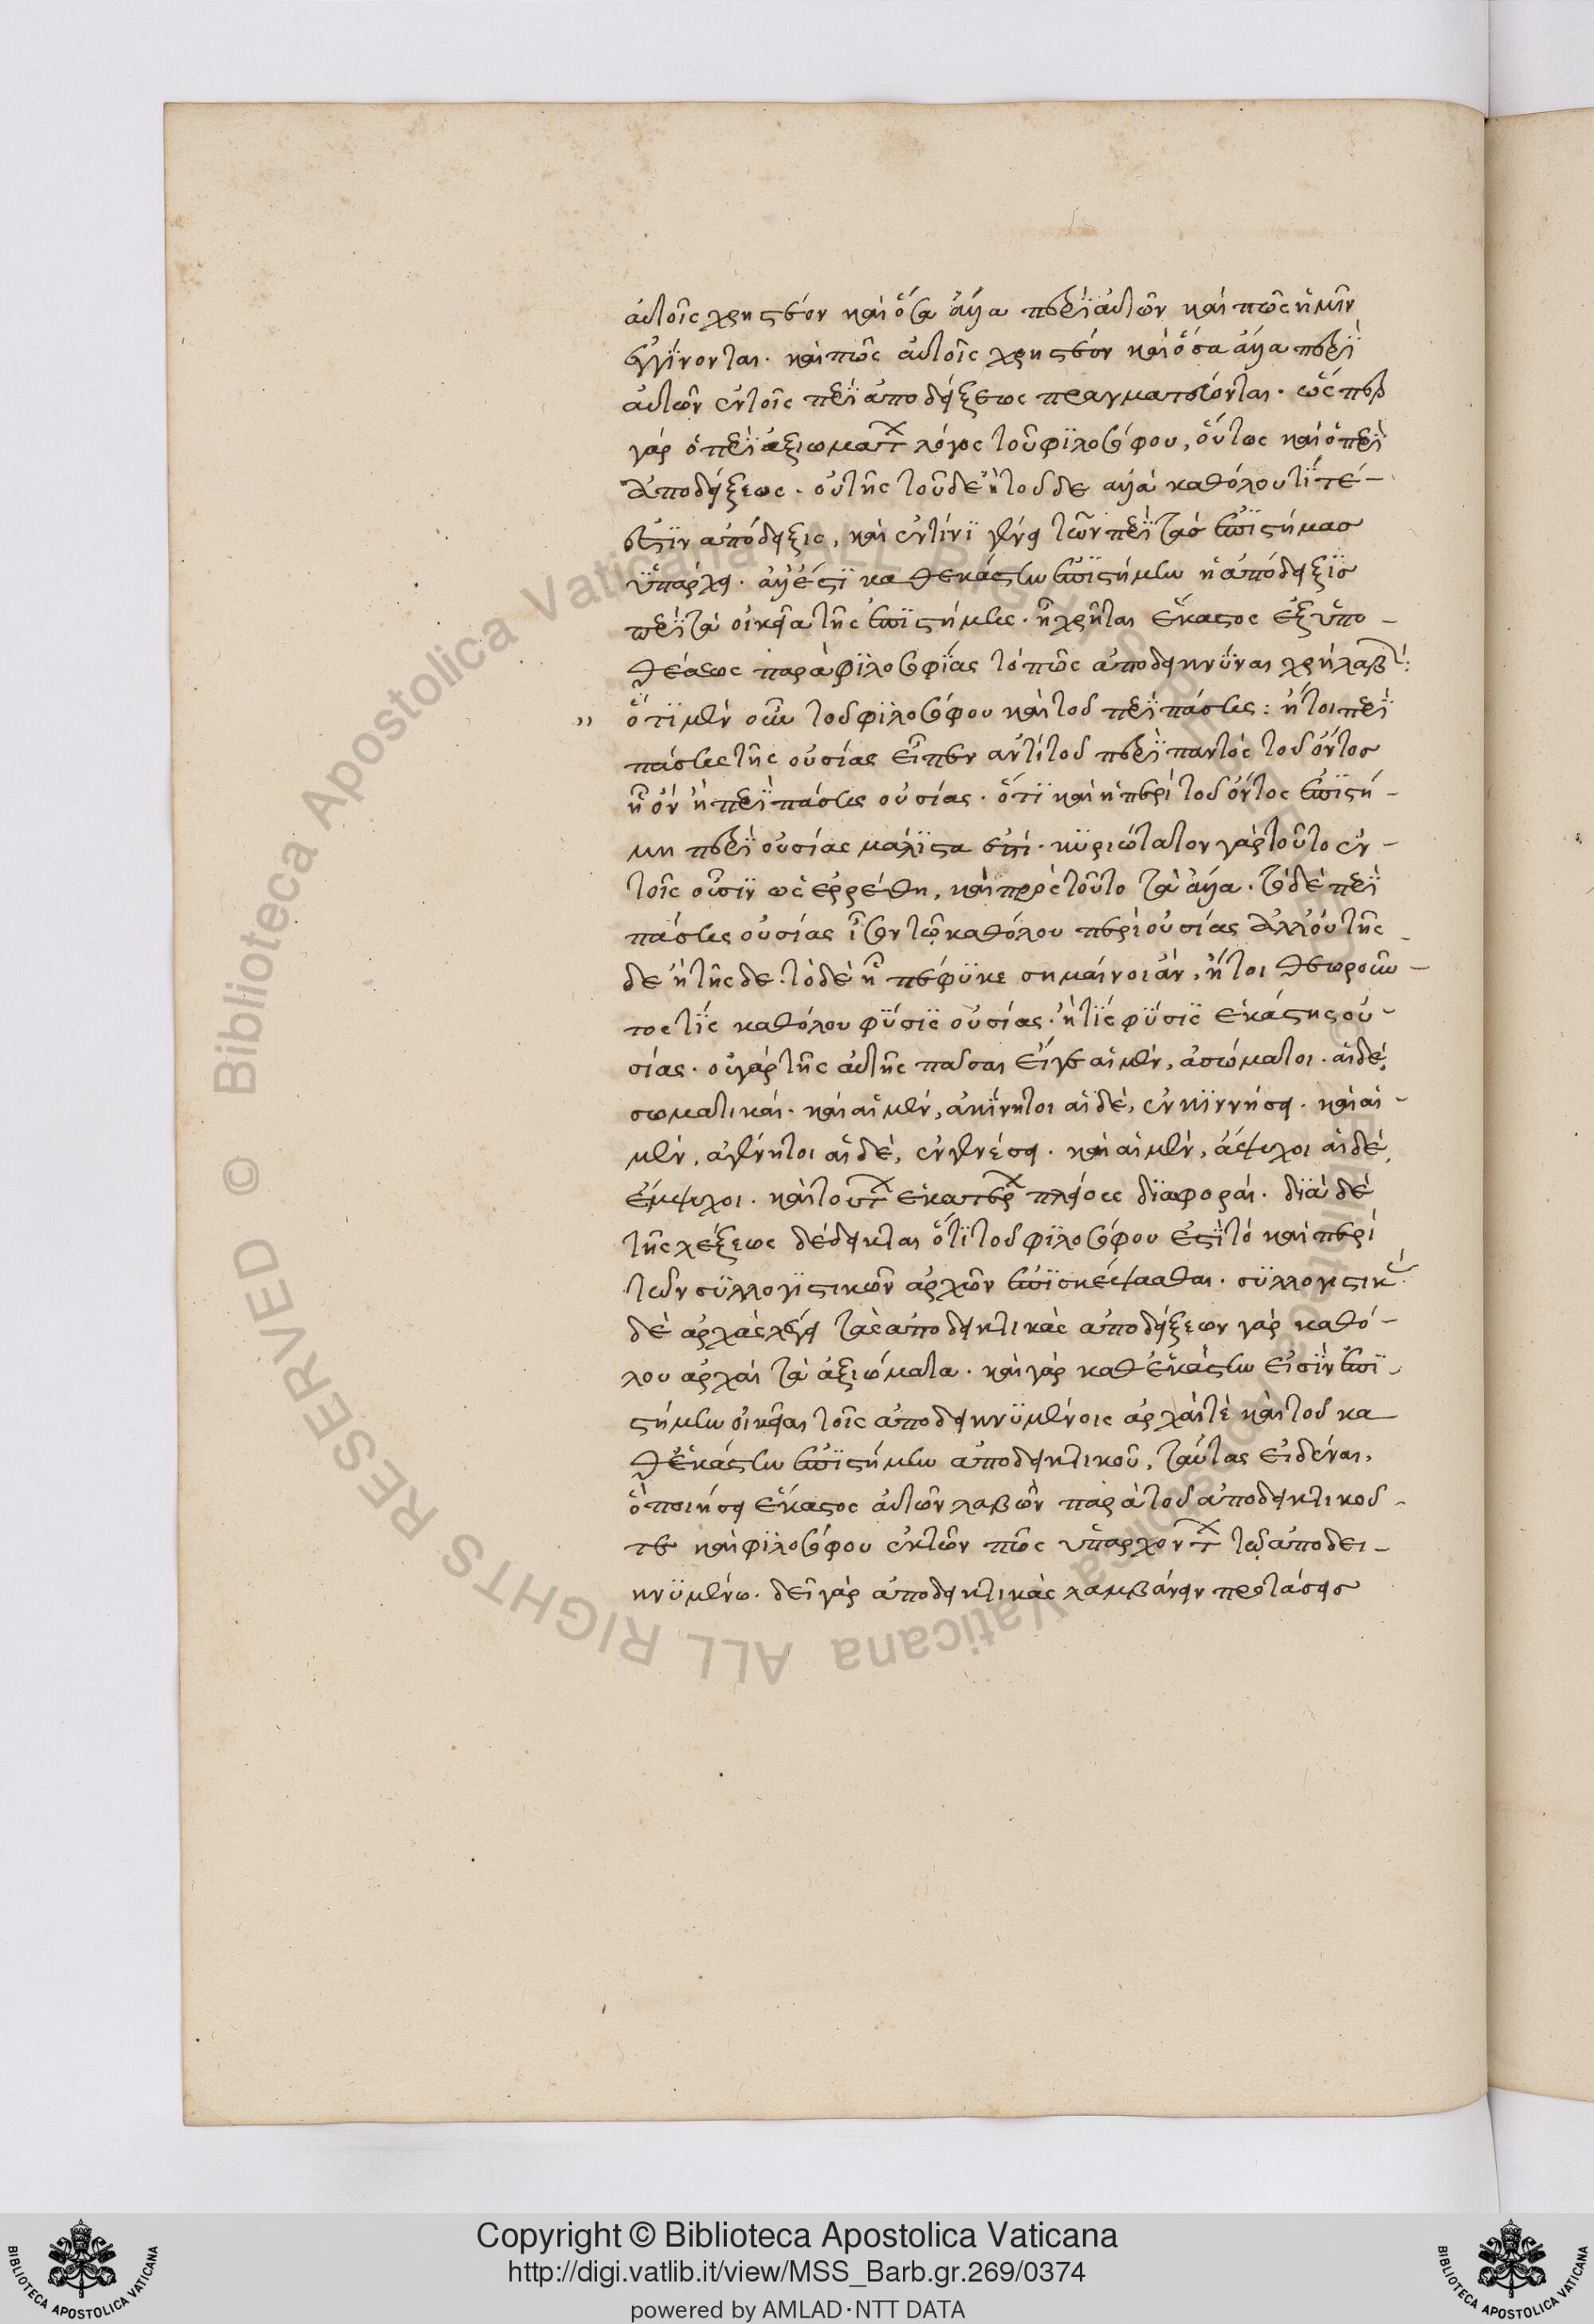 αὐτοῖς χρηστέον καὶ ὅσα ἄλλα περὶ αὐτῶν καὶ πῶς ἡμῖν
ἐγγίνονται. καὶ πῶς αὐτοῖς χρηστέον καὶ ὅσα ἄλλα περὶ
αὐτῶν ἐν τοῖς περὶ ἀποδείξεως πραγματεύονται. ὥσπερ
γὰρ ὁ περὶ ἀξιωμάτων λόγος τοῦ φιλοσόφου, οὕτως καὶ ὁ περὶ
ἀποδείξεως. οὐ τῆς τοῦδε ἢ τοῦδε ἀλλὰ καθόλου τί τέ
ἐστιν ἀπόδειξις, καὶ ἐν τίνι γένει τῶν περὶ τὰς ἐπιστήμας
ὑπάρχει. ἀλλ' ἔστι καθ' ἑκάστην ἐπιστήμην ἡ ἀπόδειξις
περὶ τὰ οἰκεῖα τῆς ἐπιστήμης. ᾗ χρῆται ἕκαστος ἐξ ὑπο-
θέσεως παρὰ φιλοσοφίας τὸ πῶς ἀποδεικνύναι χρὴ λαβών:
" ὅτι μὲν οὖν τοῦ φιλοσόφου καὶ τοῦ περὶ πάσης: ἤτοι περὶ
πάσης τῆς οὐσίας εἶπεν ἀντὶ τοῦ περὶ παντὸς τοῦ ὄντος
ᾗ ὂν ἢ περὶ πάσης οὐσίας. ὅτι καὶ ἡ περὶ τοῦ ὄντος ἐπιστή-
μη περὶ οὐσίας μάλιστα ἐστί. κυριώτατον γὰρ τοῦτο ἐν
τοῖς οὖσιν ὡς ἐρρέθη, καὶ πρὸς τοῦτο τὰ ἄλλα. τὸ δὲ περὶ
πάσης οὐσίας ἴσον τῷ καθόλου περὶ οὐσίας ἀλλ' οὐ τῆς
δε ἢ τῆς δε. τὸ δὲ ᾗ πέφυκε σημαίνοι ἂν, ἤτοι θεωροῦν-
τος τίς καθόλου φύσις οὐσίας. ἢ τίς φύσις ἑκάστης οὐ-
σίας. οὐ γὰρ τῆς αὐτῆς πᾶσαι εἴγε αἱ μὲν, ἀσώματοι. αἱ δὲ,
σωματικαί. καὶ αἱ μὲν, ἀκίνητοι αἱ δὲ, ἐν κινήσει. καὶ αἱ
μὲν, ἀγένητοι αἱ δὲ, ἐν γενέσει. καὶ αἱ μὲν, ἄψυχοι αἱ δὲ,
ἔμψυχοι. καὶ τούτων ἑκατέρων πλείους διαφοραί. διὰ δὲ
τῆς λέξεως δέδεικται ὅτι τοῦ φιλοσόφου ἐστὶ τὸ καὶ περὶ
τῶν συλλογιστικῶν ἀρχῶν ἐπισκέψασθαι. συλλογιστικὰς
δὲ ἀρχὰς λέγει τὰς ἀποδεικτικὰς ἀποδείξεων γὰρ καθό-
λου ἀρχαὶ τὰ ἀξιώματα. καὶ γὰρ καθ' ἑκάστην εἰσὶν ἐπι-
στήμην οἰκεῖαι τοῖς ἀποδεικνυμένοις ἀρχαί τε καὶ τοῦ κα
θ' ἑκάστην ἐπιστήμην ἀποδεικτικοῦ, ταύτας εἰδέναι,
ὃ ποιήσει ἕκαστος αὐτῶν λαβὼν παρὰ τοῦ ἀποδεικτικοῦ
τε καὶ φιλοσόφου ἐκ τῶν πῶς ὑπαρχόντων τῷ ἀποδει-
κνυμένῳ. δεῖ γὰρ ἀποδεικτικὰς λαμβάνειν προτάσεις
Biblioteca Apostolica Vaticana ALL RIGHTS RESERVED ©
Copyright © Biblioteca Apostolica Vaticana
http://digi.vatlib.it/view/MSS_Barb.gr.269/0374
powered by AMLAD·NTT DATA
BIBLIOTECA APOSTOLICA VATICANA
BIBLIOTECA APOSTOLICA VATICANA